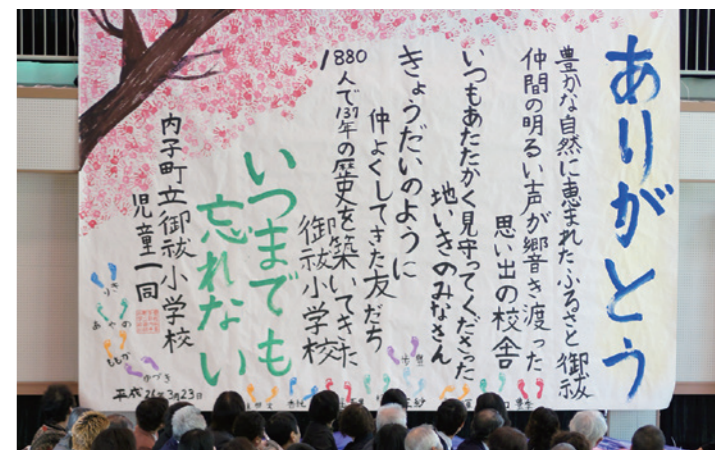 ありがとう
豊かな自然に恵まれたふるさと御祓
仲間の明るい声が響き渡った
思い出の校舎
いつもあたたかく見守ってくださった
地いきのみなさん
きょうだいのように
仲よくしてきた友だち
1880人で137年の歴史を築いてきた
御祓小学校
いつまでも
忘れない
内子町立御祓小学校
児童一同
りき
あやの
ももか
ゆづき
平成26年3月23日